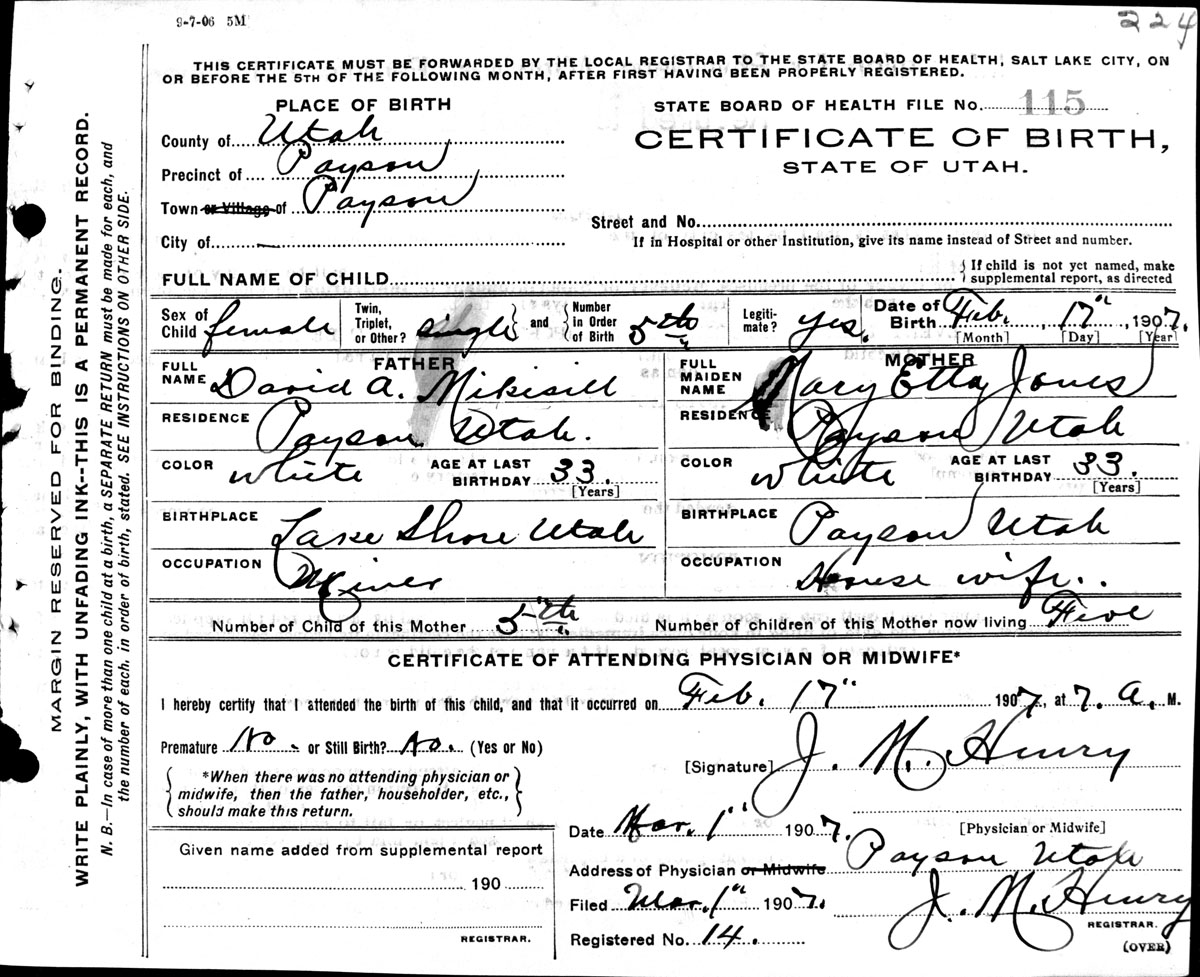 9-7-06 5M
224
THIS CERTIFICATE MUST BE FORWARDED BY THE LOCAL REGISTRAR TO THE STATE BOARD OF HEALTH, SALT LAKE CITY, ON
OR BEFORE THE 5TH OF THE FOLLOWING MONTH, AFTER FIRST HAVING BEEN PROPERLY REGISTERED.
PLACE OF BIRTH
STATE BOARD OF HEALTH FILE No. 115
County of Utah
CERTIFICATE OF BIRTH,
STATE OF UTAH.
Precinct of Payson
Town or Village of Payson
Street and No.
City of —
If in Hospital or other Institution, give its name instead of Street and number.
FULL NAME OF CHILD
If child is not yet named, make
supplemental report, as directed
Sex of Child female Twin, Triplet, or Other? single and Number in Order of Birth 5th Legiti-mate? yes. Date of Birth Feb. 17", 1907.
[Month] [Day] [Year]
FATHER MOTHER
FULL NAME David A. Mikisill FULL MAIDEN NAME Mary Etta Jones
RESIDENCE Payson Utah. RESIDENCE Payson Utah
COLOR White AGE AT LAST BIRTHDAY 33. [Years] COLOR White AGE AT LAST BIRTHDAY 33. [Years]
BIRTHPLACE Lake Shore Utah BIRTHPLACE Payson Utah
OCCUPATION Miner OCCUPATION House wife..
Number of Child of this Mother 5th Number of children of this Mother now living Five
CERTIFICATE OF ATTENDING PHYSICIAN OR MIDWIFE*
I hereby certify that I attended the birth of this child, and that it occurred on Feb. 17" 1907, at 7. A. M.
Premature No. or Still Birth? No. (Yes or No)
[Signature] J. M. Henry
*When there was no attending physician or
midwife, then the father, householder, etc.,
should make this return.
Date Mar. 1" 1907.
[Physician or Midwife]
Given name added from supplemental report
Address of Physician or Midwife Payson Utah
190
Filed Mar. 1" 1907. J. M. Henry
REGISTRAR.
Registered No. 14.
REGISTRAR.
(OVER)
MARGIN RESERVED FOR BINDING.
WRITE PLAINLY, WITH UNFADING INK--THIS IS A PERMANENT RECORD.
N. B.—In case of more than one child at a birth, a SEPARATE RETURN must be made for each, and
the number of each, in order of birth, stated. SEE INSTRUCTIONS ON OTHER SIDE.